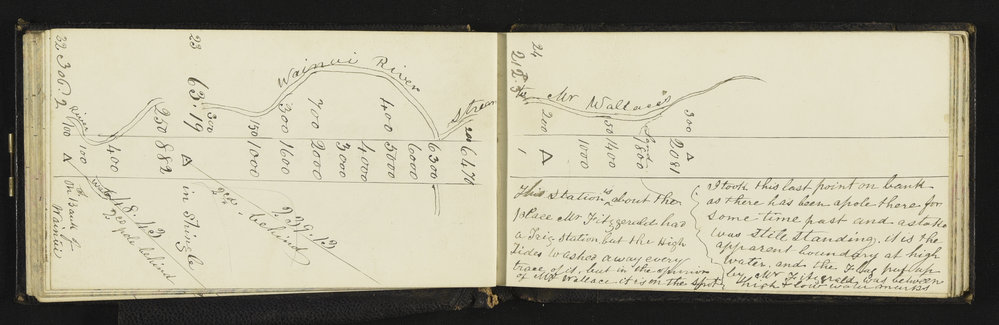 23
24
Wainui River
Stream
River
32 306.2
63.19
212.
A
700
100
400
250 882
A in Shingle
300
150 1000
300 1600
700 2000
3000
4000
400 5000
6000
6300
200 6470
A
on Bank of
Wainui
pole behind
239.12
behind
Mr Wallace's
200 A
1000
50 1400
1800
300
A
2081
This Station is about the
place Mr Fitzgerald had
a Trig Station but the High
Tides Washed away every
trace of it, but in the opinion
of Mr Wallace it is on the spot
I took this last point on bank
as there has been a pole there for
some time past and a stake
was still standing. it is the
apparent boundary at high
water, and the Flag put up
by Mr Fitzgerald was between
high & low water marks